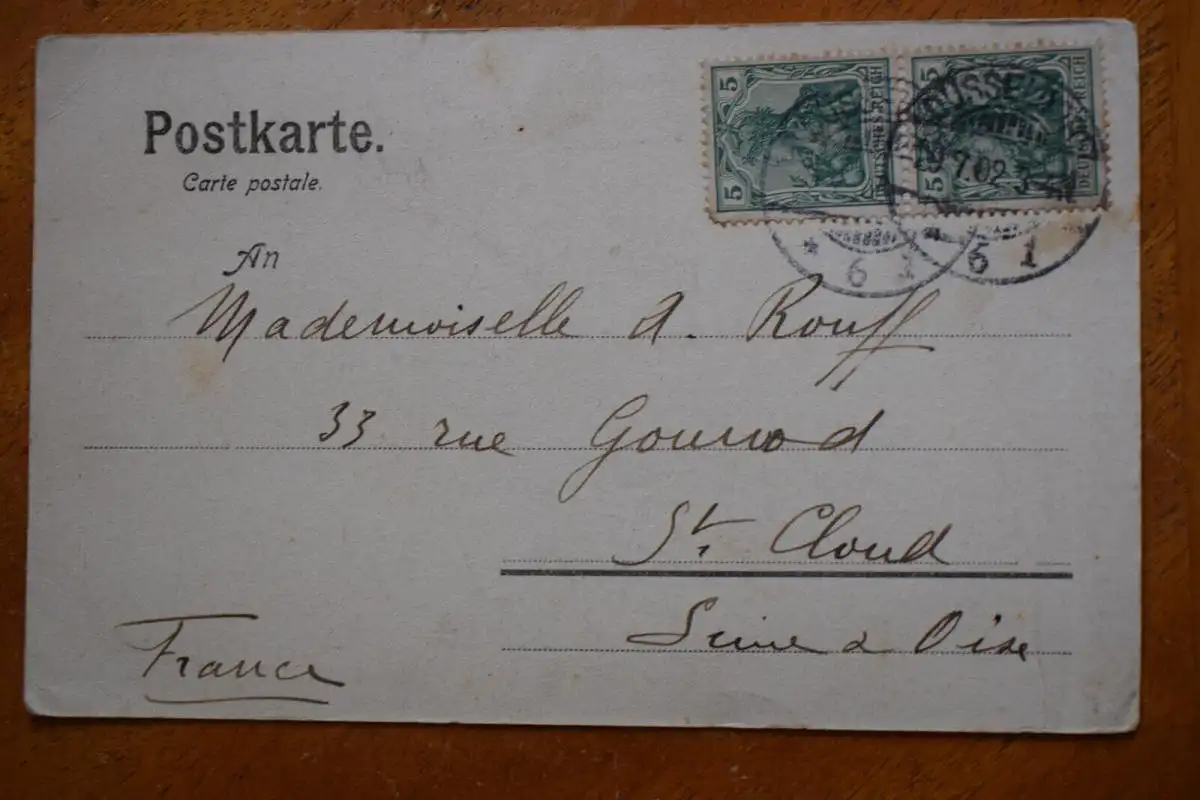 Postkarte.
Carte postale.
5 5 DEUTSCHES REICH
5 5 DEUTSCHES REICH
7.02
* 6 1
6 1
An
Mademoiselle A. Rouff
33 rue Gounod
St. Cloud
Seine & Oise
France